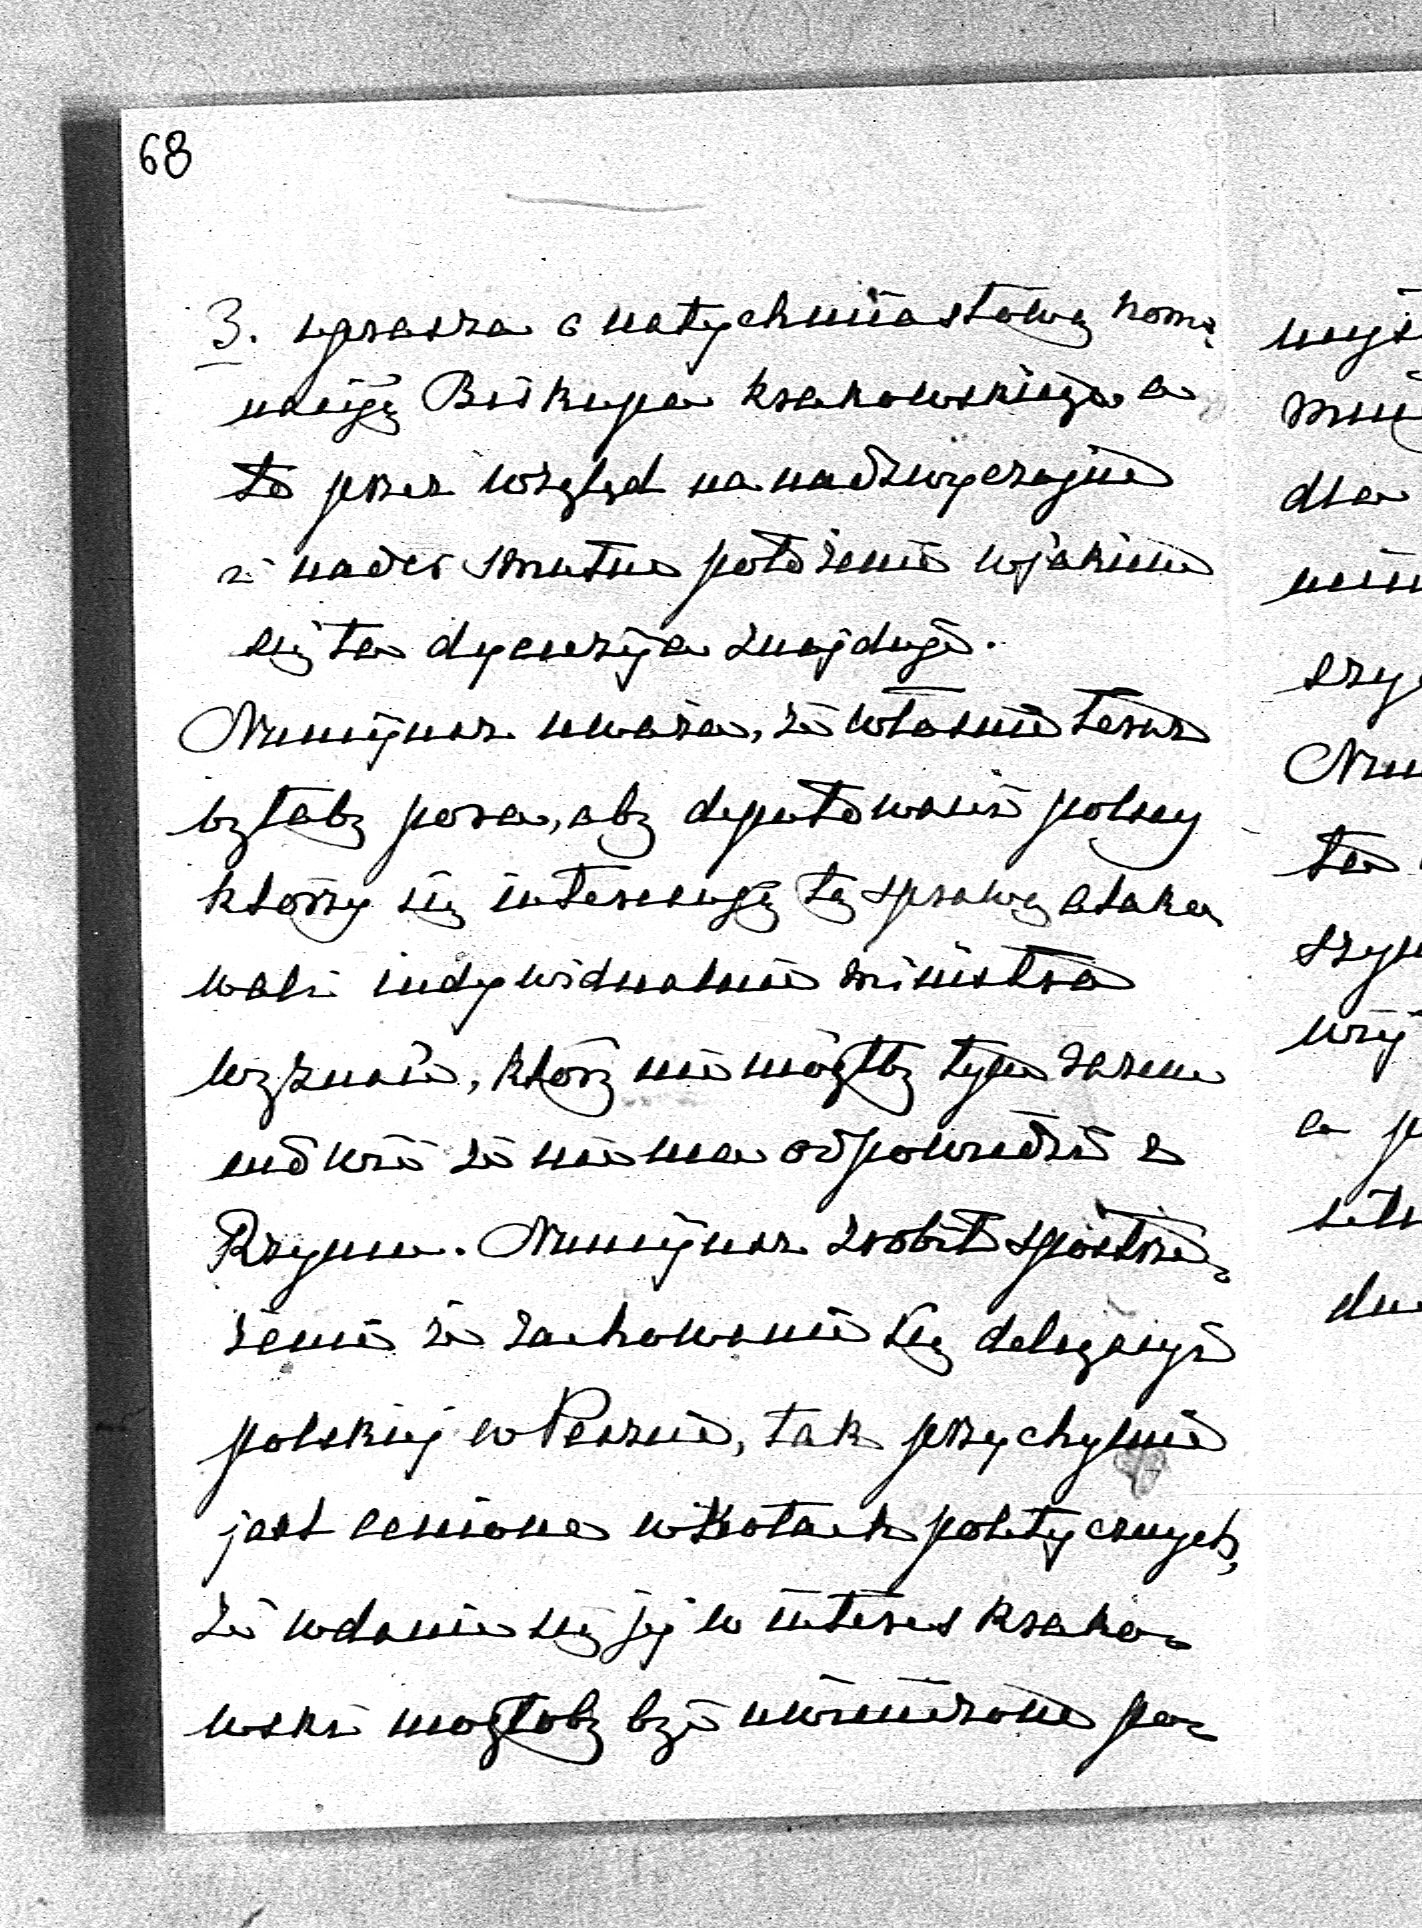 68
3. uprasza o natychmiastową nomi-
naciję Biskupa krakowskiego a
to przez wzgląd na nadzwyczajne
i nader smutne położenie w jakiem
się ta dyecezija znajduje.
Nuncijusz uważa, że właśnie teraz
byłaby pora, aby deputowani polscy
którzy się interesują tą sprawą atako
wali indywidualnie ministra
wyznań, który nie mógłby tym razem
mówić że nie ma odpowiedzi z
Rzymu. Nuncijusz zrobił spostrze-
żenie że zachowanie się delegacyi
polskiej w Peszcie, tak przychylnie
jest cenione w kołach politycznych,
że wdanie się jej w interes krako-
wski mogłoby być uwieńczone po-